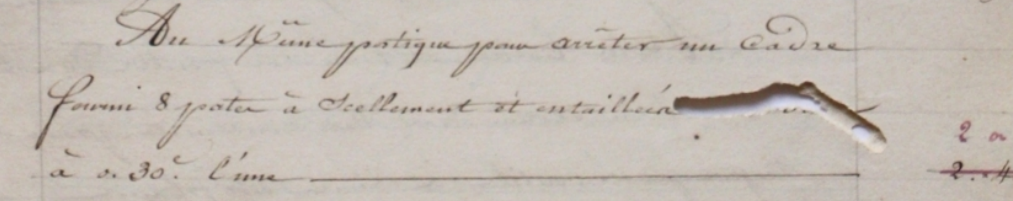 Au Même portique pour arrêter un Cadre
fourni 8 pates à Scellement et entaillées
à 0.30c. l'une
2
2..4